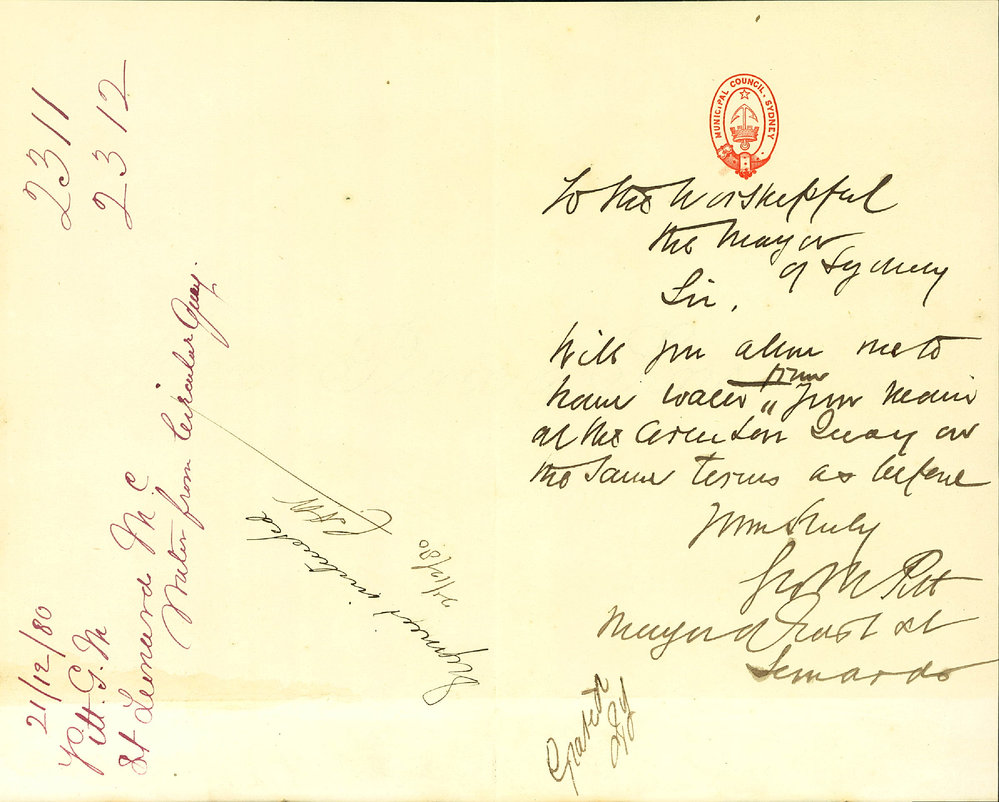 2311
2312
21/12/80
Pitt. G. M
St Leonards M. C
Water from Circular Quay.
Engineer instructed
21/12/80
MUNICIPAL COUNCIL, SYDNEY
To the Worshipful
the Mayor
of Sydney
Sir,
Will you allow me to
have water from main
at the Circular Quay on
the same terms as before
Yours truly
Geo M Pitt
Mayor of East St
Leonards